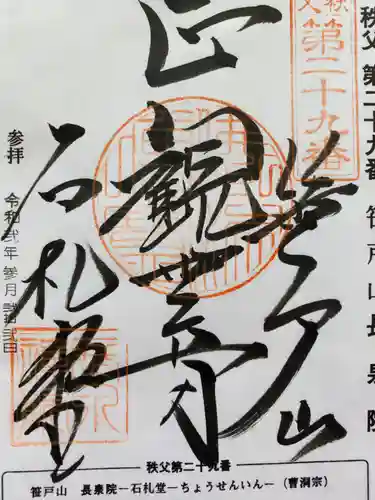 秩父 第二十九番 笹戸山 長泉院
第二十九番
笹戸山
正観世音
石札堂
参拝 令和弐年 参月 弐拾弐日
秩父第二十九番
笹戸山 長泉院ー石札堂ーちょうせんいんー（曹洞宗）